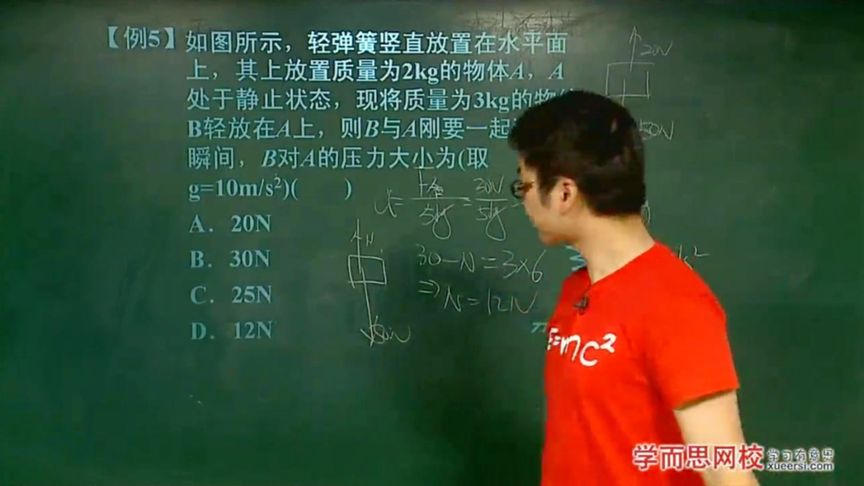 【例5】如图所示，轻弹簧竖直放置在水平面
上，其上放置质量为2kg的物体A，A
处于静止状态，现将质量为3kg的物
B轻放在A上，则B与A刚要一起
瞬间，B对A的压力大小为(取
g=10m/s²)( )
A．20N
B．30N
C．25N
D．12N
20N
50N
a=F合/5kg=30N/5kg
N
30-N=3×6
⇒N=12N
30N
E=mc²
学而思网校
学习有意思
xueersi.com